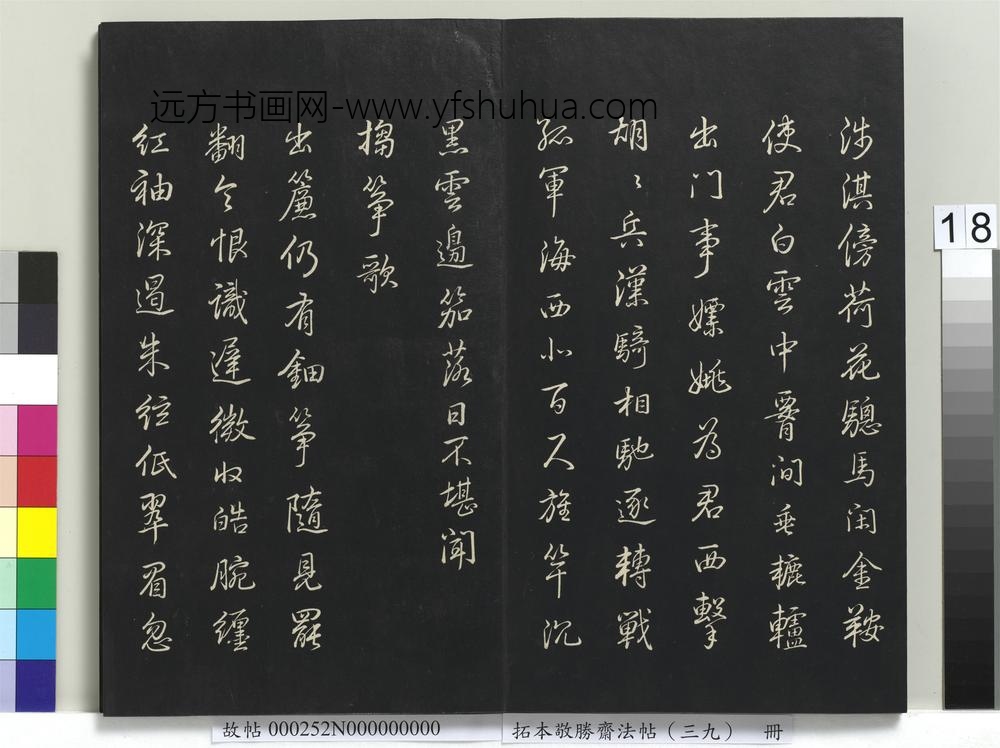 涉淇傍荷花驄馬閑金鞍
使君白雲中腰間垂轆轤
出门事嫖姚為君西擊
胡〻兵漢騎相馳逐轉戰
孤軍海西北百尺旌竿沉
黑雲邊笳落日不堪聞
搊箏歌
出簾仍有鈿箏隨見罷
翻令恨識遲微收皓腕纏
紅袖深遏朱絃低翠眉忽
远方书画网-www.yfshuhua.com
18
故帖 000252N000000000
拓本敬勝齋法帖（三九） 冊